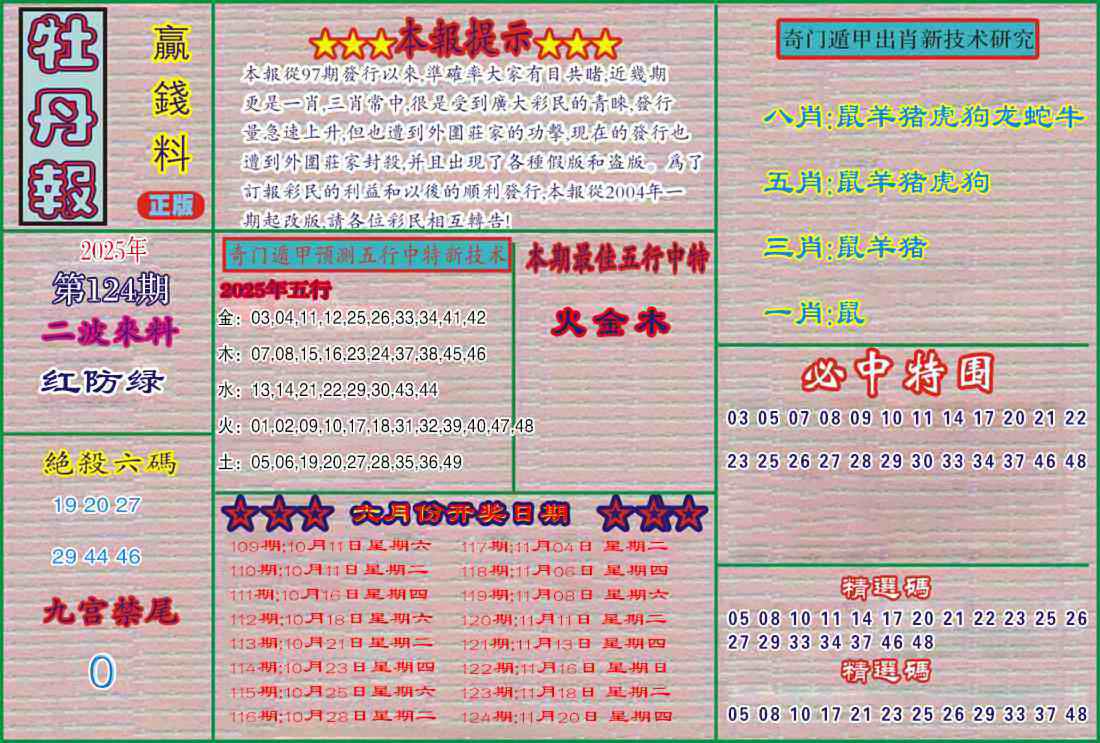 牡丹報
赢錢料
正版
2025年
第124期
二波來料
红防绿
絕殺六碼
19 20 27
29 44 46
九宫禁尾
0
★★★本報提示★★★
本報從97期發行以來,準確率大家有目共睹,近幾期
更是一肖,三肖常中,很是受到廣大彩民的青睞,發行
量急速上升,但也遭到外圍莊家的功擊,現在的發行也
遭到外圍莊家封殺,并且出現了各種假版和盗版。爲了
訂報彩民的利益和以後的順利發行,本報從2004年一
期起改版,請各位彩民相互轉告!
奇门遁甲预测五行中特新技术
2025年五行
金：03,04,11,12,25,26,33,34,41,42
木：07,08,15,16,23,24,37,38,45,46
水：13,14,21,22,29,30,43,44
火：01,02,09,10,17,18,31,32,39,40,47,48
土：05,06,19,20,27,28,35,36,49
本期最佳五行中特
火金木
★★★ 六月份开奖日期 ★★★
109期;10月11日星期六
110期;10月11日星期二
111期;10月16日星期四
112期;10月18日星期六
113期;10月21日星期二
114期;10月23日星期四
115期;10月25日星期六
116期;10月28日星期二
117期;11月04日 星期二
118期;11月06日 星期四
119期;11月08日 星期六
120期;11月11日 星期二
121期;11月13日 星期四
122期;11月16日 星期日
123期;11月18日 星期二
124期;11月20日 星期四
奇门遁甲出肖新技术研究
八肖;鼠羊猪虎狗龙蛇牛
五肖;鼠羊猪虎狗
三肖;鼠羊猪
一肖;鼠
必中特围
03 05 07 08 09 10 11 14 17 20 21 22
23 25 26 27 28 29 30 33 34 37 46 48
精選碼
05 08 10 11 14 17 20 21 22 23 25 26
27 29 33 34 37 46 48
精選碼
05 08 10 17 21 23 25 26 29 33 37 48